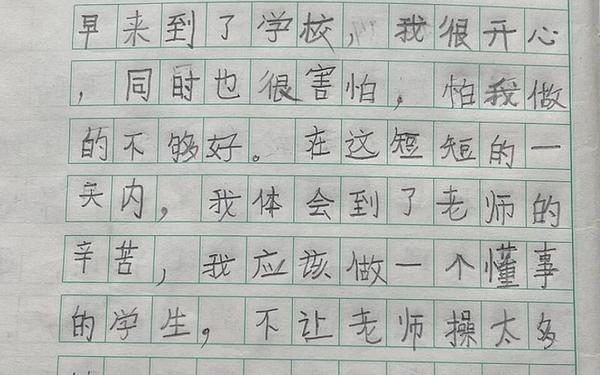 早来到了学校，我很开心
，同时也很害怕，怕我做
的不够好。在这短短的一
天内，我体会到了老师的
辛苦，我应该做一个懂事
的学生，不让老师操太多